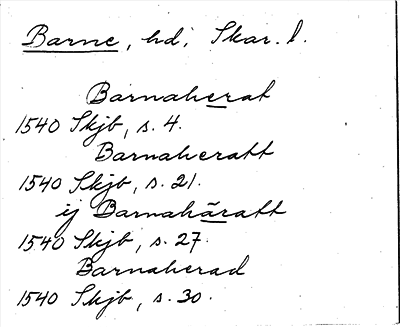 Barne, hd, Skar. l.
Barnaherat
1540 Skjb, s. 4.
Barnaheratt
1540 Skjb, s. 21.
ij Barnahäratt
1540 Skjb, s. 27.
Barnaherad
1540 Skjb, s. 30.